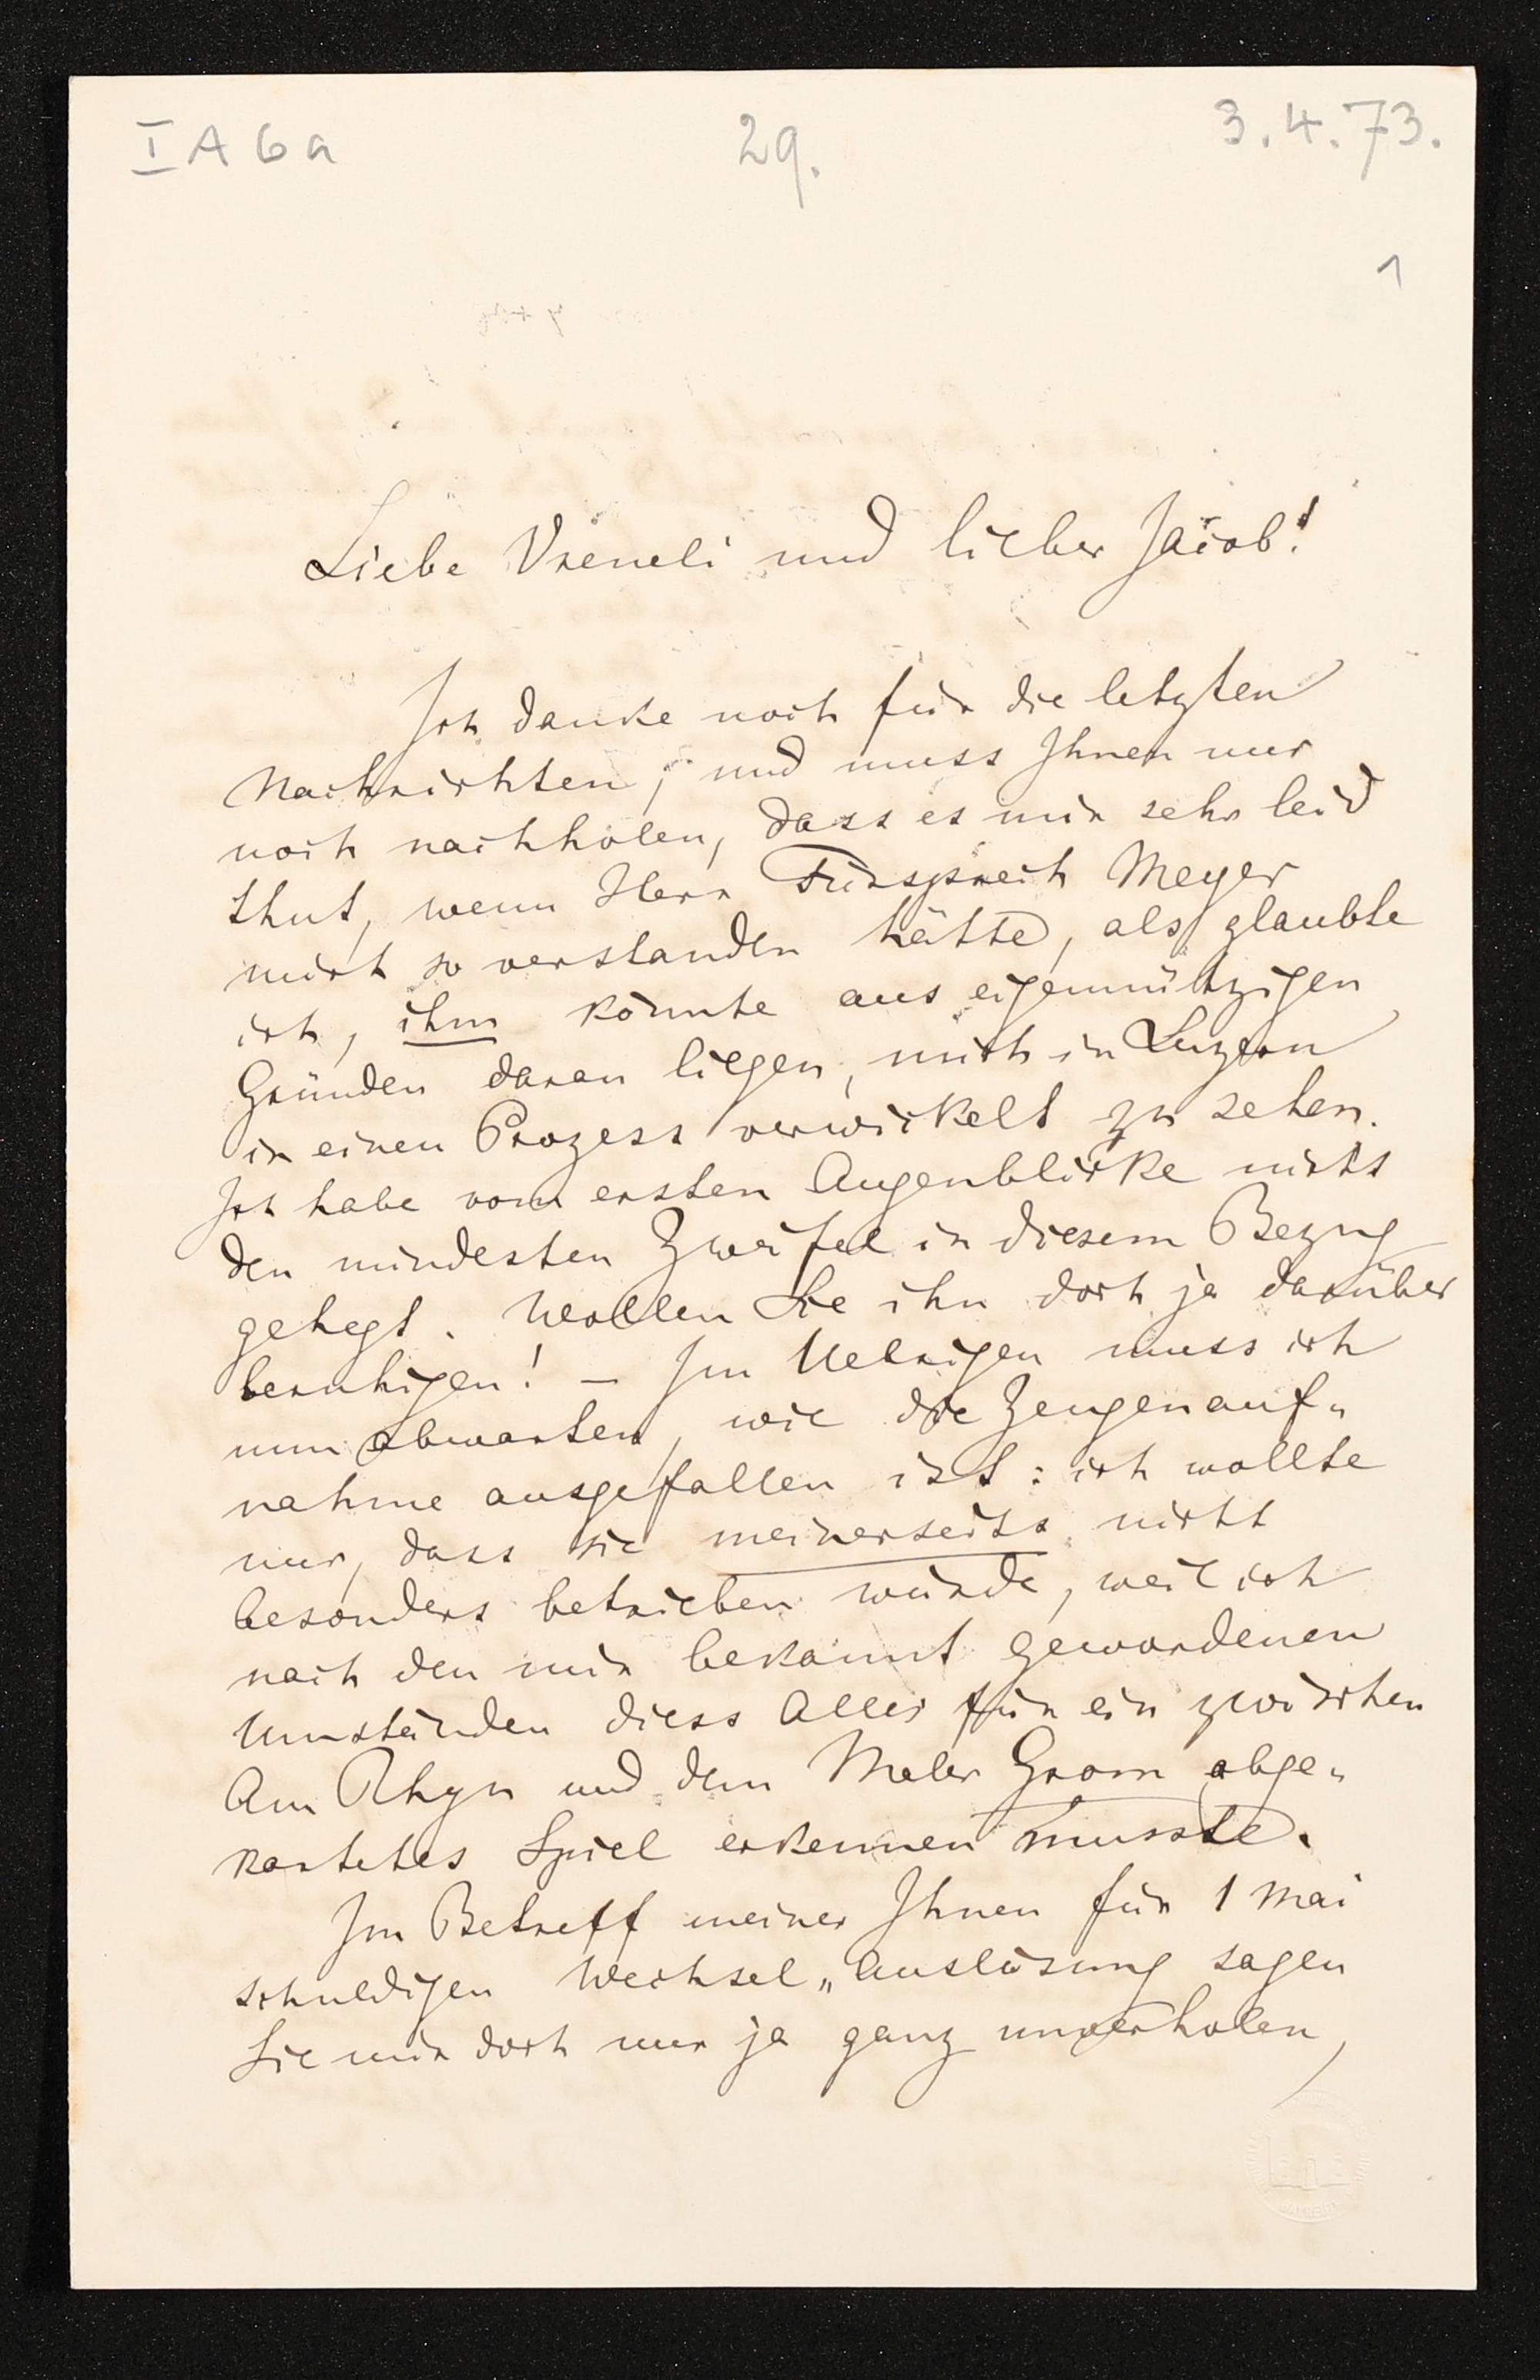 I A 6 a 29. 3.4.73.
1
Liebe Vreneli und lieber Jacob!
Ich danke noch für die letzten
Nachrichten, und muss Ihnen nur
noch nachholen, dass es mir sehr leid
thut, wenn Herr Fürsprech Meyer
mich so verstanden hätte, als glaubte
ich, ihm könnte aus eigennützigen
Gründen daran liegen, mich in Luzern
in einen Prozess verwickelt zu sehen.
Ich habe vom ersten Augenblicke nicht
den mindesten Zweifel in diesem Bezug
gehegt. Wollen Sie ihn doch ja darüber
beruhigen! – Im Uebrigen muss ich
nun abwarten, wie die Zeugenauf-
nahme ausgefallen ist: ich wollte
nur, dass sie meinerseits nicht
besonders betrieben würde, weil ich
nach den mir bekannt gewordenen
Umständen diess Alles für ein zwischen
Am Rhyn und dem Maler Grom abge-
kartetes Spiel erkennen musste.
Im Betreff meiner Ihnen für 1 Mai
schuldigen Wechsel-Auslösung sagen
Sie mir doch nur ja ganz unverholen,